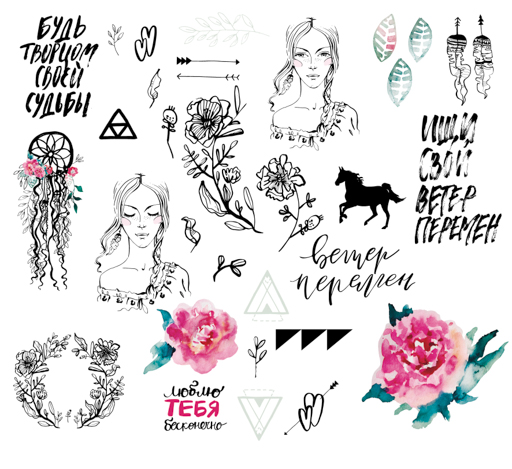 БУДЬ
ТВОРЦОМ
СВОЕЙ
СУДЬБЫ
ИЩИ
СВОЙ
ВЕТЕР
ПЕРЕМЕН
ветер
перемен
люблю
ТЕБЯ
бесконечно